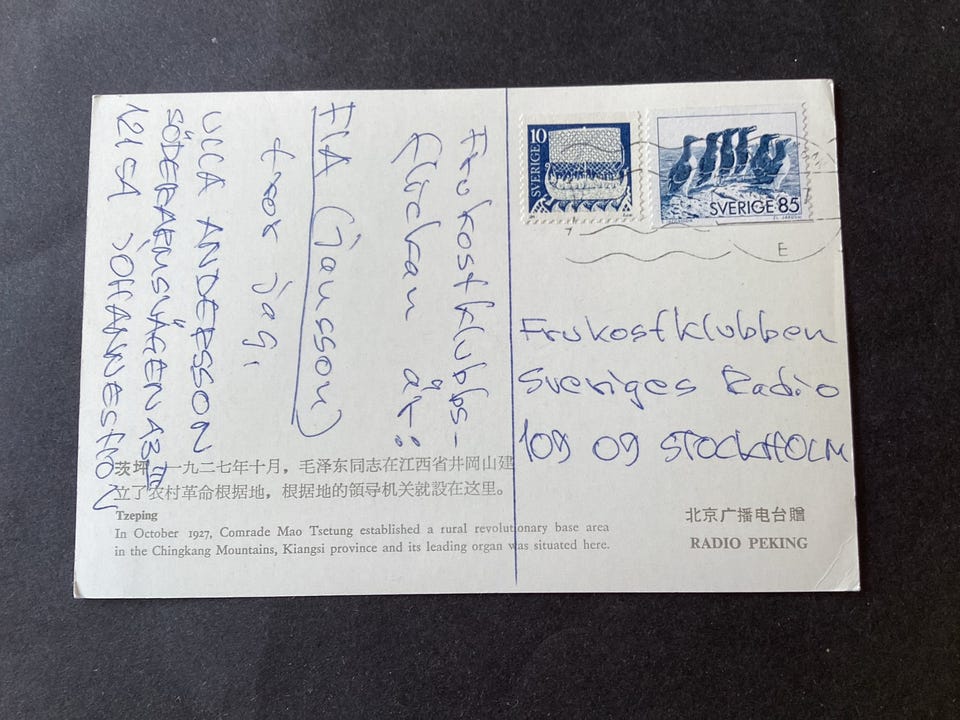 Frukostklubbs-
flickan är:
FIA (Jansson)
tror jag,
ULLA ANDERSSON
SÖDERARMSVÄGEN 43
121 54 JOHANNESHOV
10
SVERIGE
SVERIGE 85
E
Frukostklubben
Sveriges Radio
109 09 STOCKHOLM
茨坪 一九二七年十月，毛泽东同志在江西省井冈山建
立了农村革命根据地，根据地的領导机关就設在这里。
Tzeping
In October 1927, Comrade Mao Tsetung established a rural revolutionary base area
in the Chingkang Mountains, Kiangsi province and its leading organ was situated here.
北京广播电台贈
RADIO PEKING